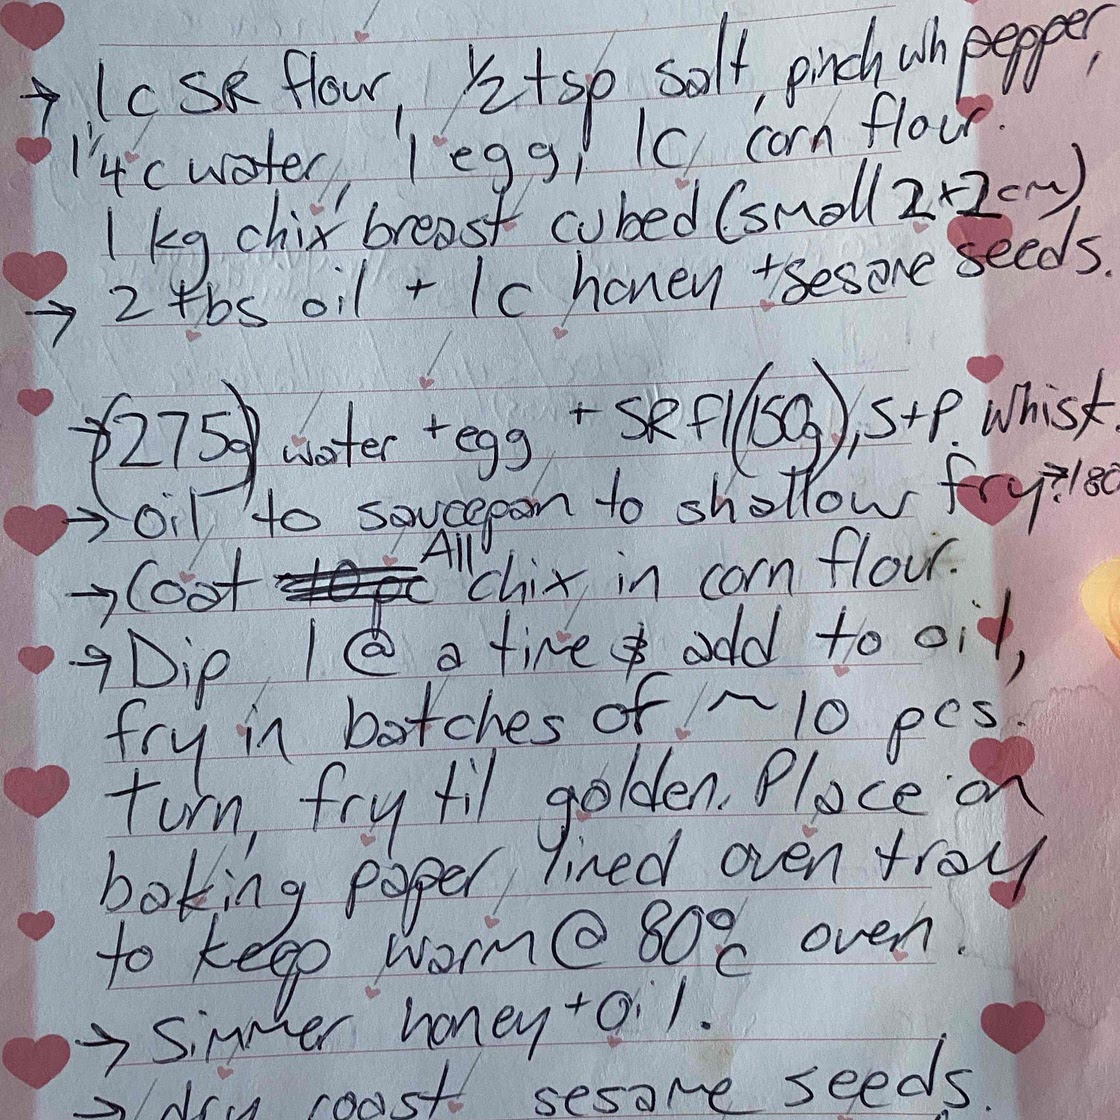 → 1c SR flour, ½ tsp salt, pinch wh pepper,
1¼ c water, 1 egg, 1c corn flour.
1 kg chix breast cubed (small 2x2cm)
→ 2 tbs oil + 1c honey + sesame seeds.
→ (275g) water + egg + SR fl (150g), S+P. Whisk.
→ oil to saucepan to shallow fry → 180
→ Coat All chix in corn flour.
→ Dip 1 @ a time & add to oil,
fry in batches of ~10 pcs.
turn, fry til golden. Place on
baking paper lined oven tray
to keep warm @ 80°c oven.
→ Simmer honey + oil.
→ dry roast sesame seeds.